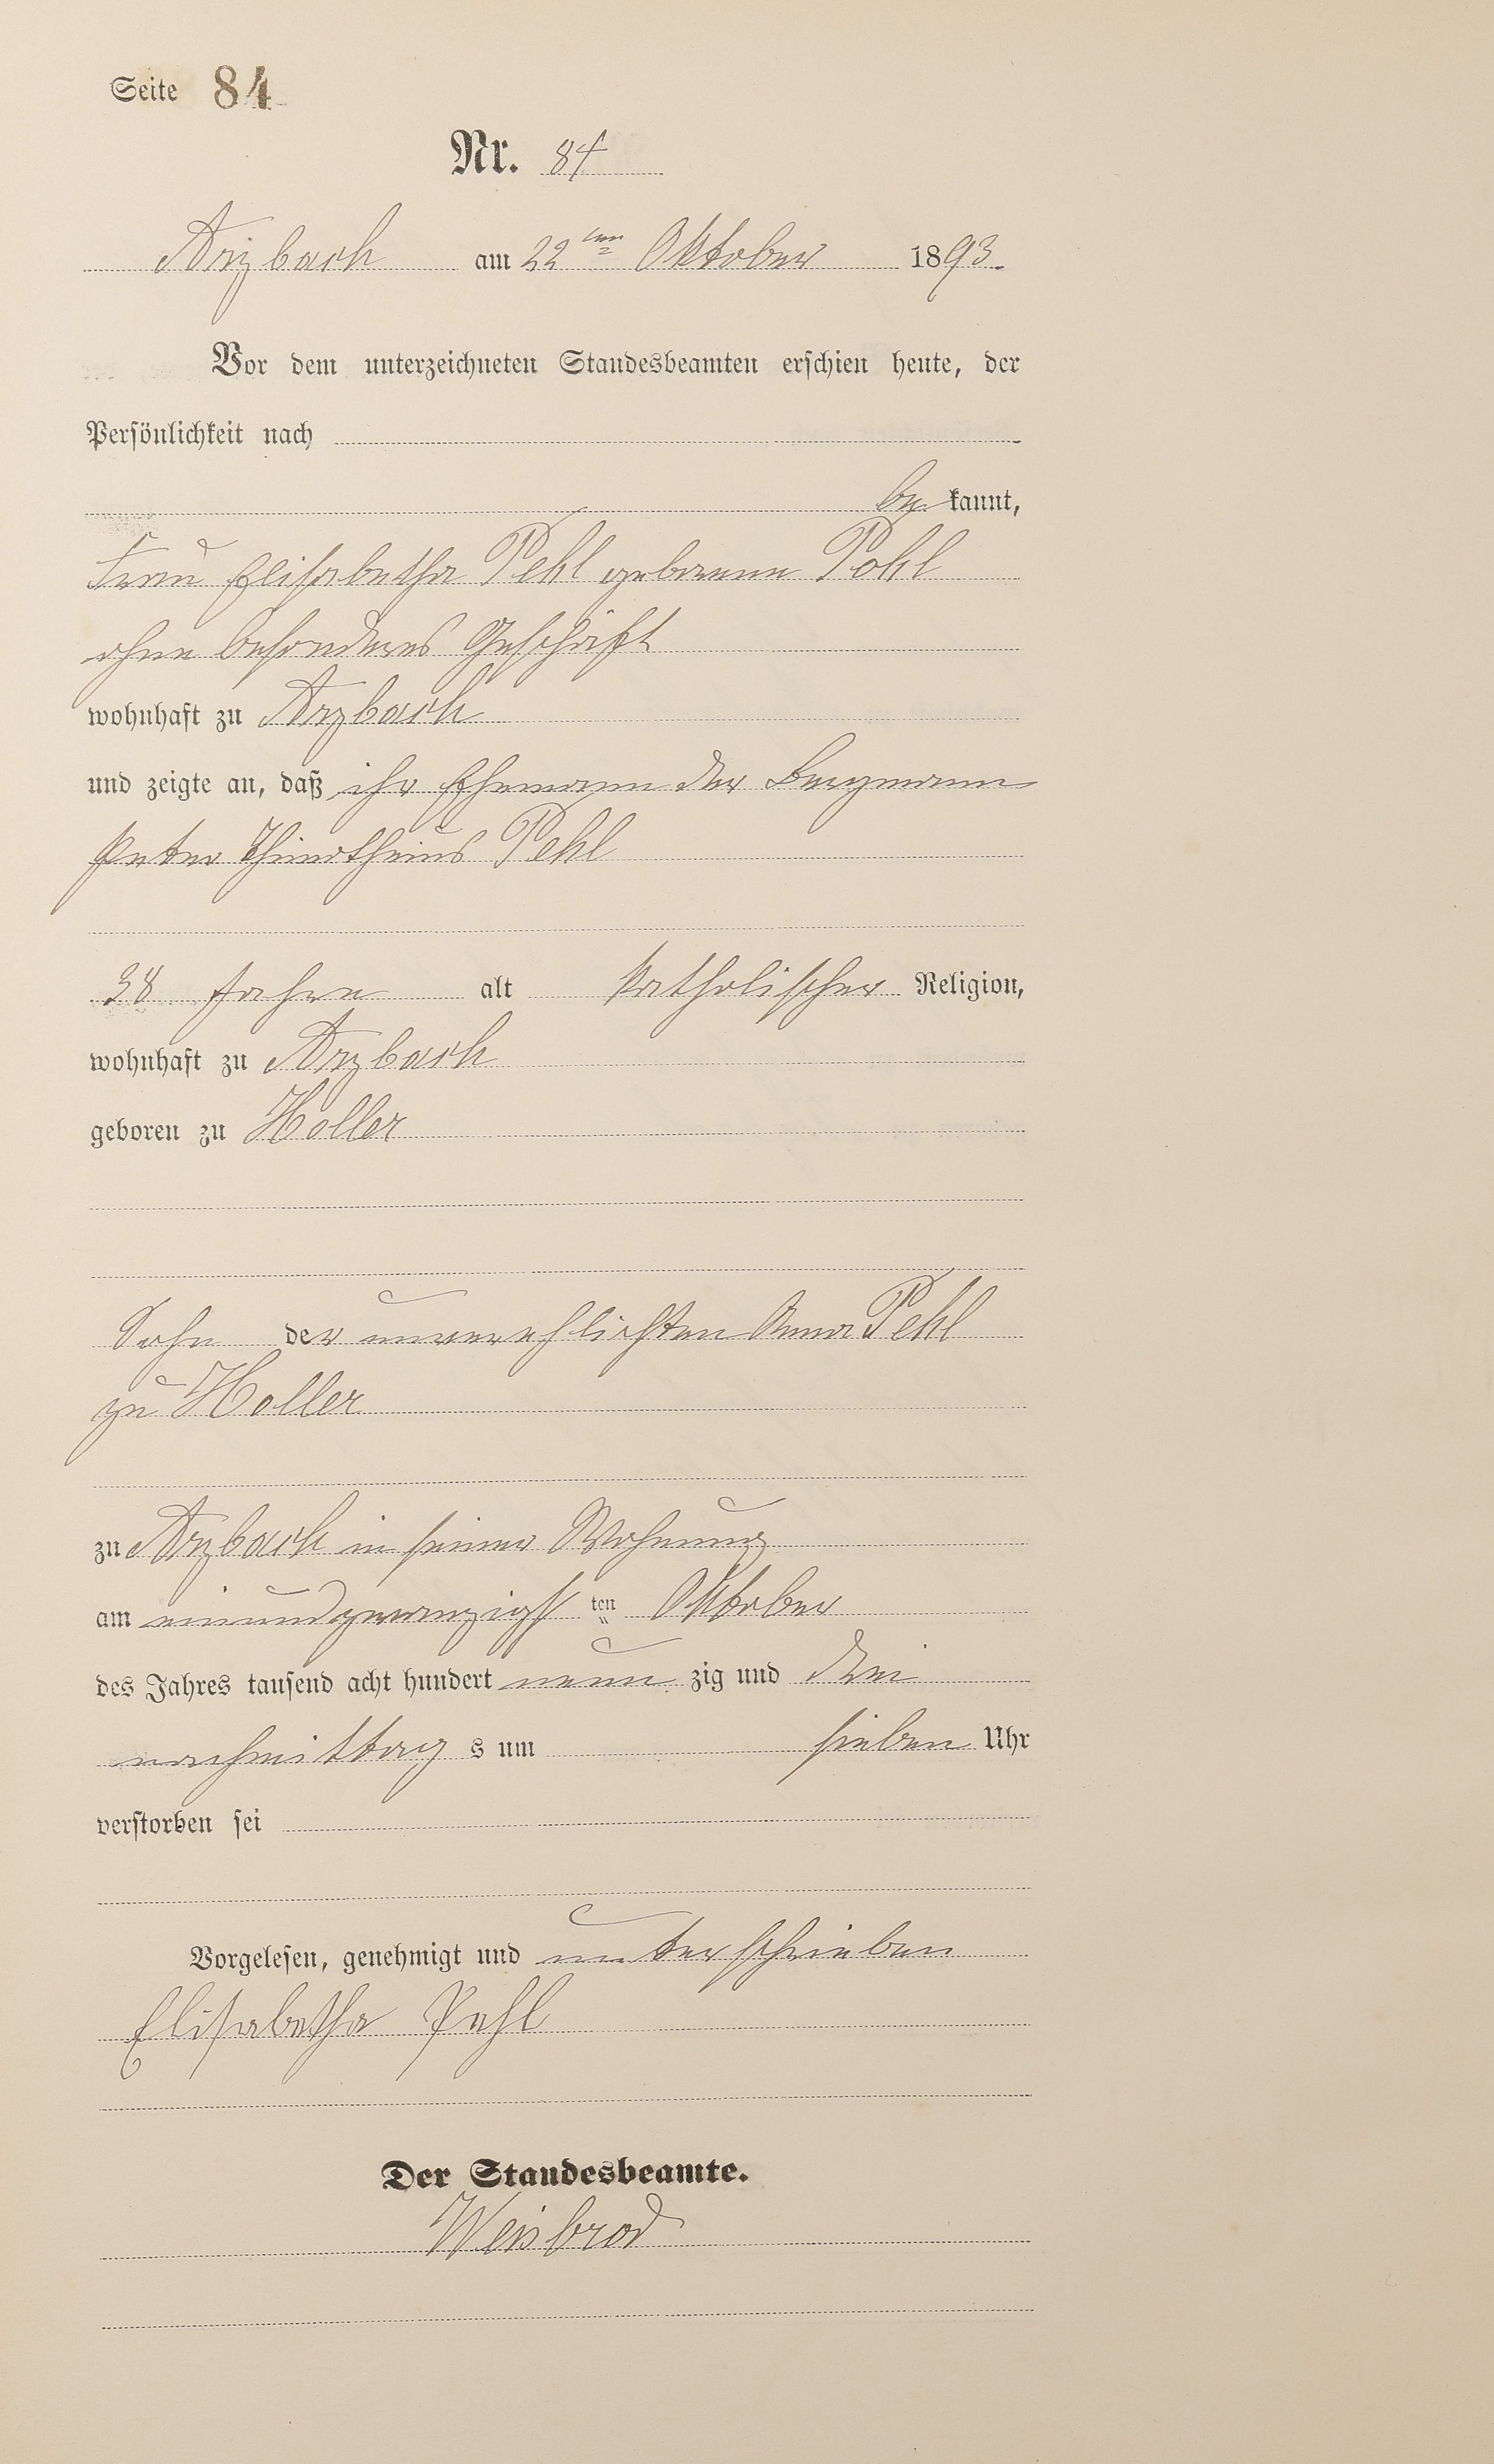 Seite 84
Nr. 84
Arzbach am 22ten Oktober 1893
Vor dem unterzeichneten Standesbeamten erschien heute, der
Persönlichkeit nach
be kannt,
Frau Elisabetha Pehl geborene Pohl
ohne besonderes Geschäft
wohnhaft zu Arzbach
und zeigte an, daß ihr Ehemann der Bergmann
Peter Thimotheus Pehl
38 Jahre alt katholischer Religion,
wohnhaft zu Arzbach
geboren zu Holler
Sohn der unverehlichten Anna Pehl
zu Holler
zu Arzbach in seiner Wohnung
am einundzwanzigsten Oktober
des Jahres tausend acht hundert neun zig und drei
nachmittag s um sieben Uhr
verstorben sei
Vorgelesen, genehmigt und unterschrieben
Elisabetha Pehl
Der Standesbeamte.
Weisbrod